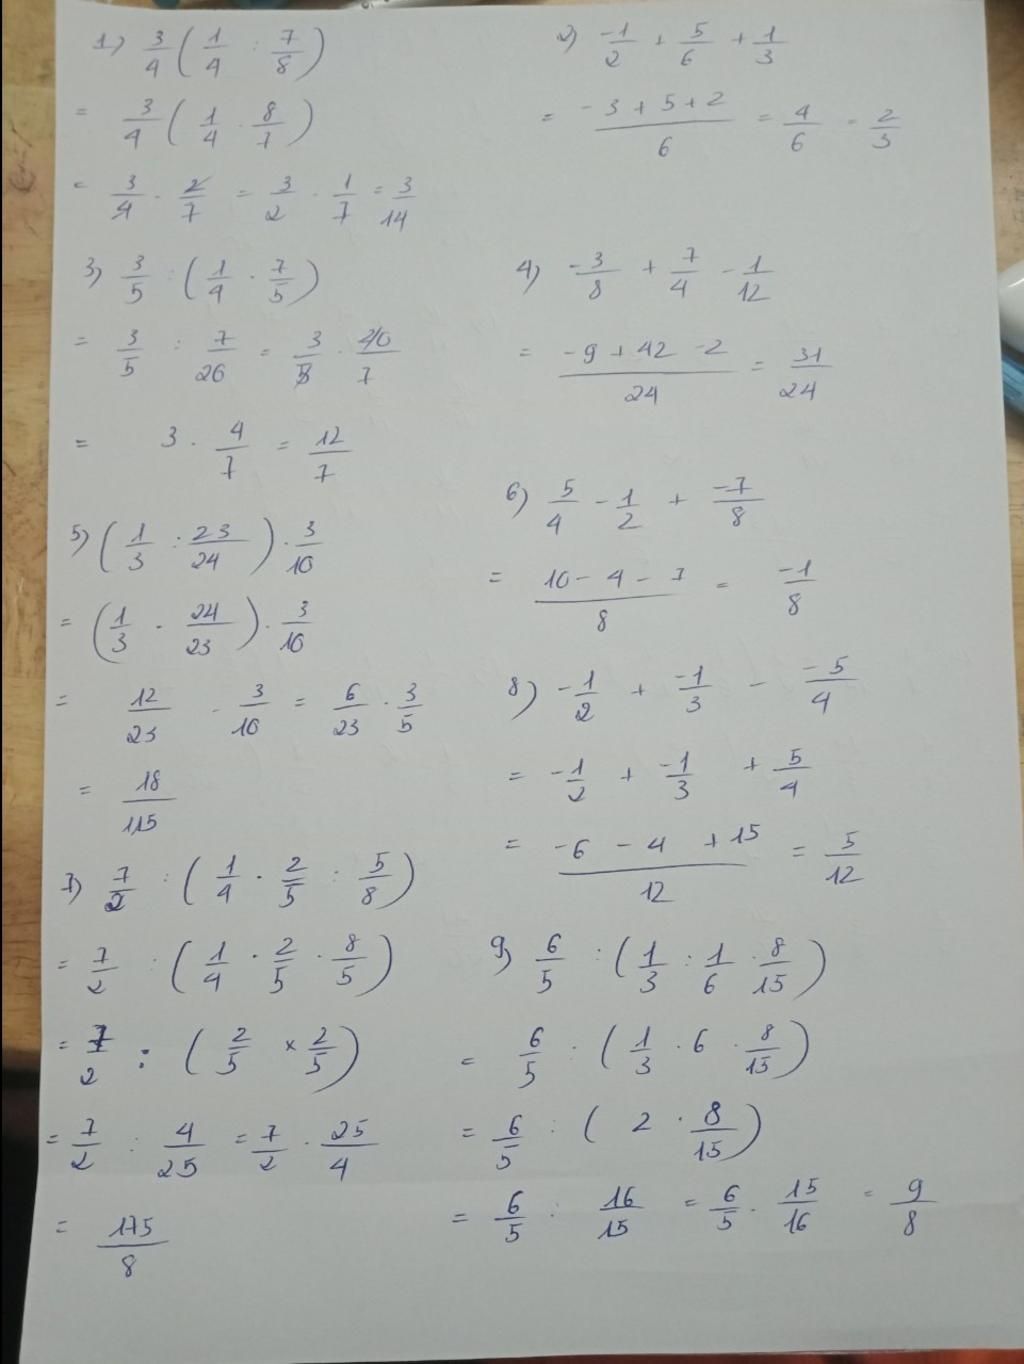 1) 3/4 ( 1/4 : 7/8 )
= 3/4 ( 1/4 . 8/7 )
= 3/4 . 2/7 = 3/2 . 1/7 = 3/14
2) -1/2 + 5/6 + 1/3
= (-3 + 5 + 2)/6 = 4/6 = 2/3
3) 3/5 : ( 1/4 . 7/5 )
= 3/5 : 7/20 = 3/5 . 20/7
= 3 . 4/7 = 12/7
4) -3/8 + 7/4 - 1/12
= (-9 + 42 - 2)/24 = 31/24
5) ( 1/3 : 23/24 ) . 3/10
= ( 1/3 . 24/23 ) . 3/10
= 12/23 . 3/10 = 6/23 . 3/5
= 18/115
6) 5/4 - 1/2 + -7/8
= (10 - 4 - 7)/8 = -1/8
7) 7/2 : ( 1/4 . 2/5 : 5/8 )
= 7/2 : ( 1/4 . 2/5 . 8/5 )
= 7/2 : ( 2/5 × 2/5 )
= 7/2 : 4/25 = 7/2 . 25/4
= 175/8
8) -1/2 + -1/3 - -5/4
= -1/2 + -1/3 + 5/4
= (-6 - 4 + 15)/12 = 5/12
9) 6/5 : ( 1/3 : 1/6 . 8/15 )
= 6/5 : ( 1/3 . 6 . 8/15 )
= 6/5 : ( 2 . 8/15 )
= 6/5 : 16/15 = 6/5 . 15/16 = 9/8